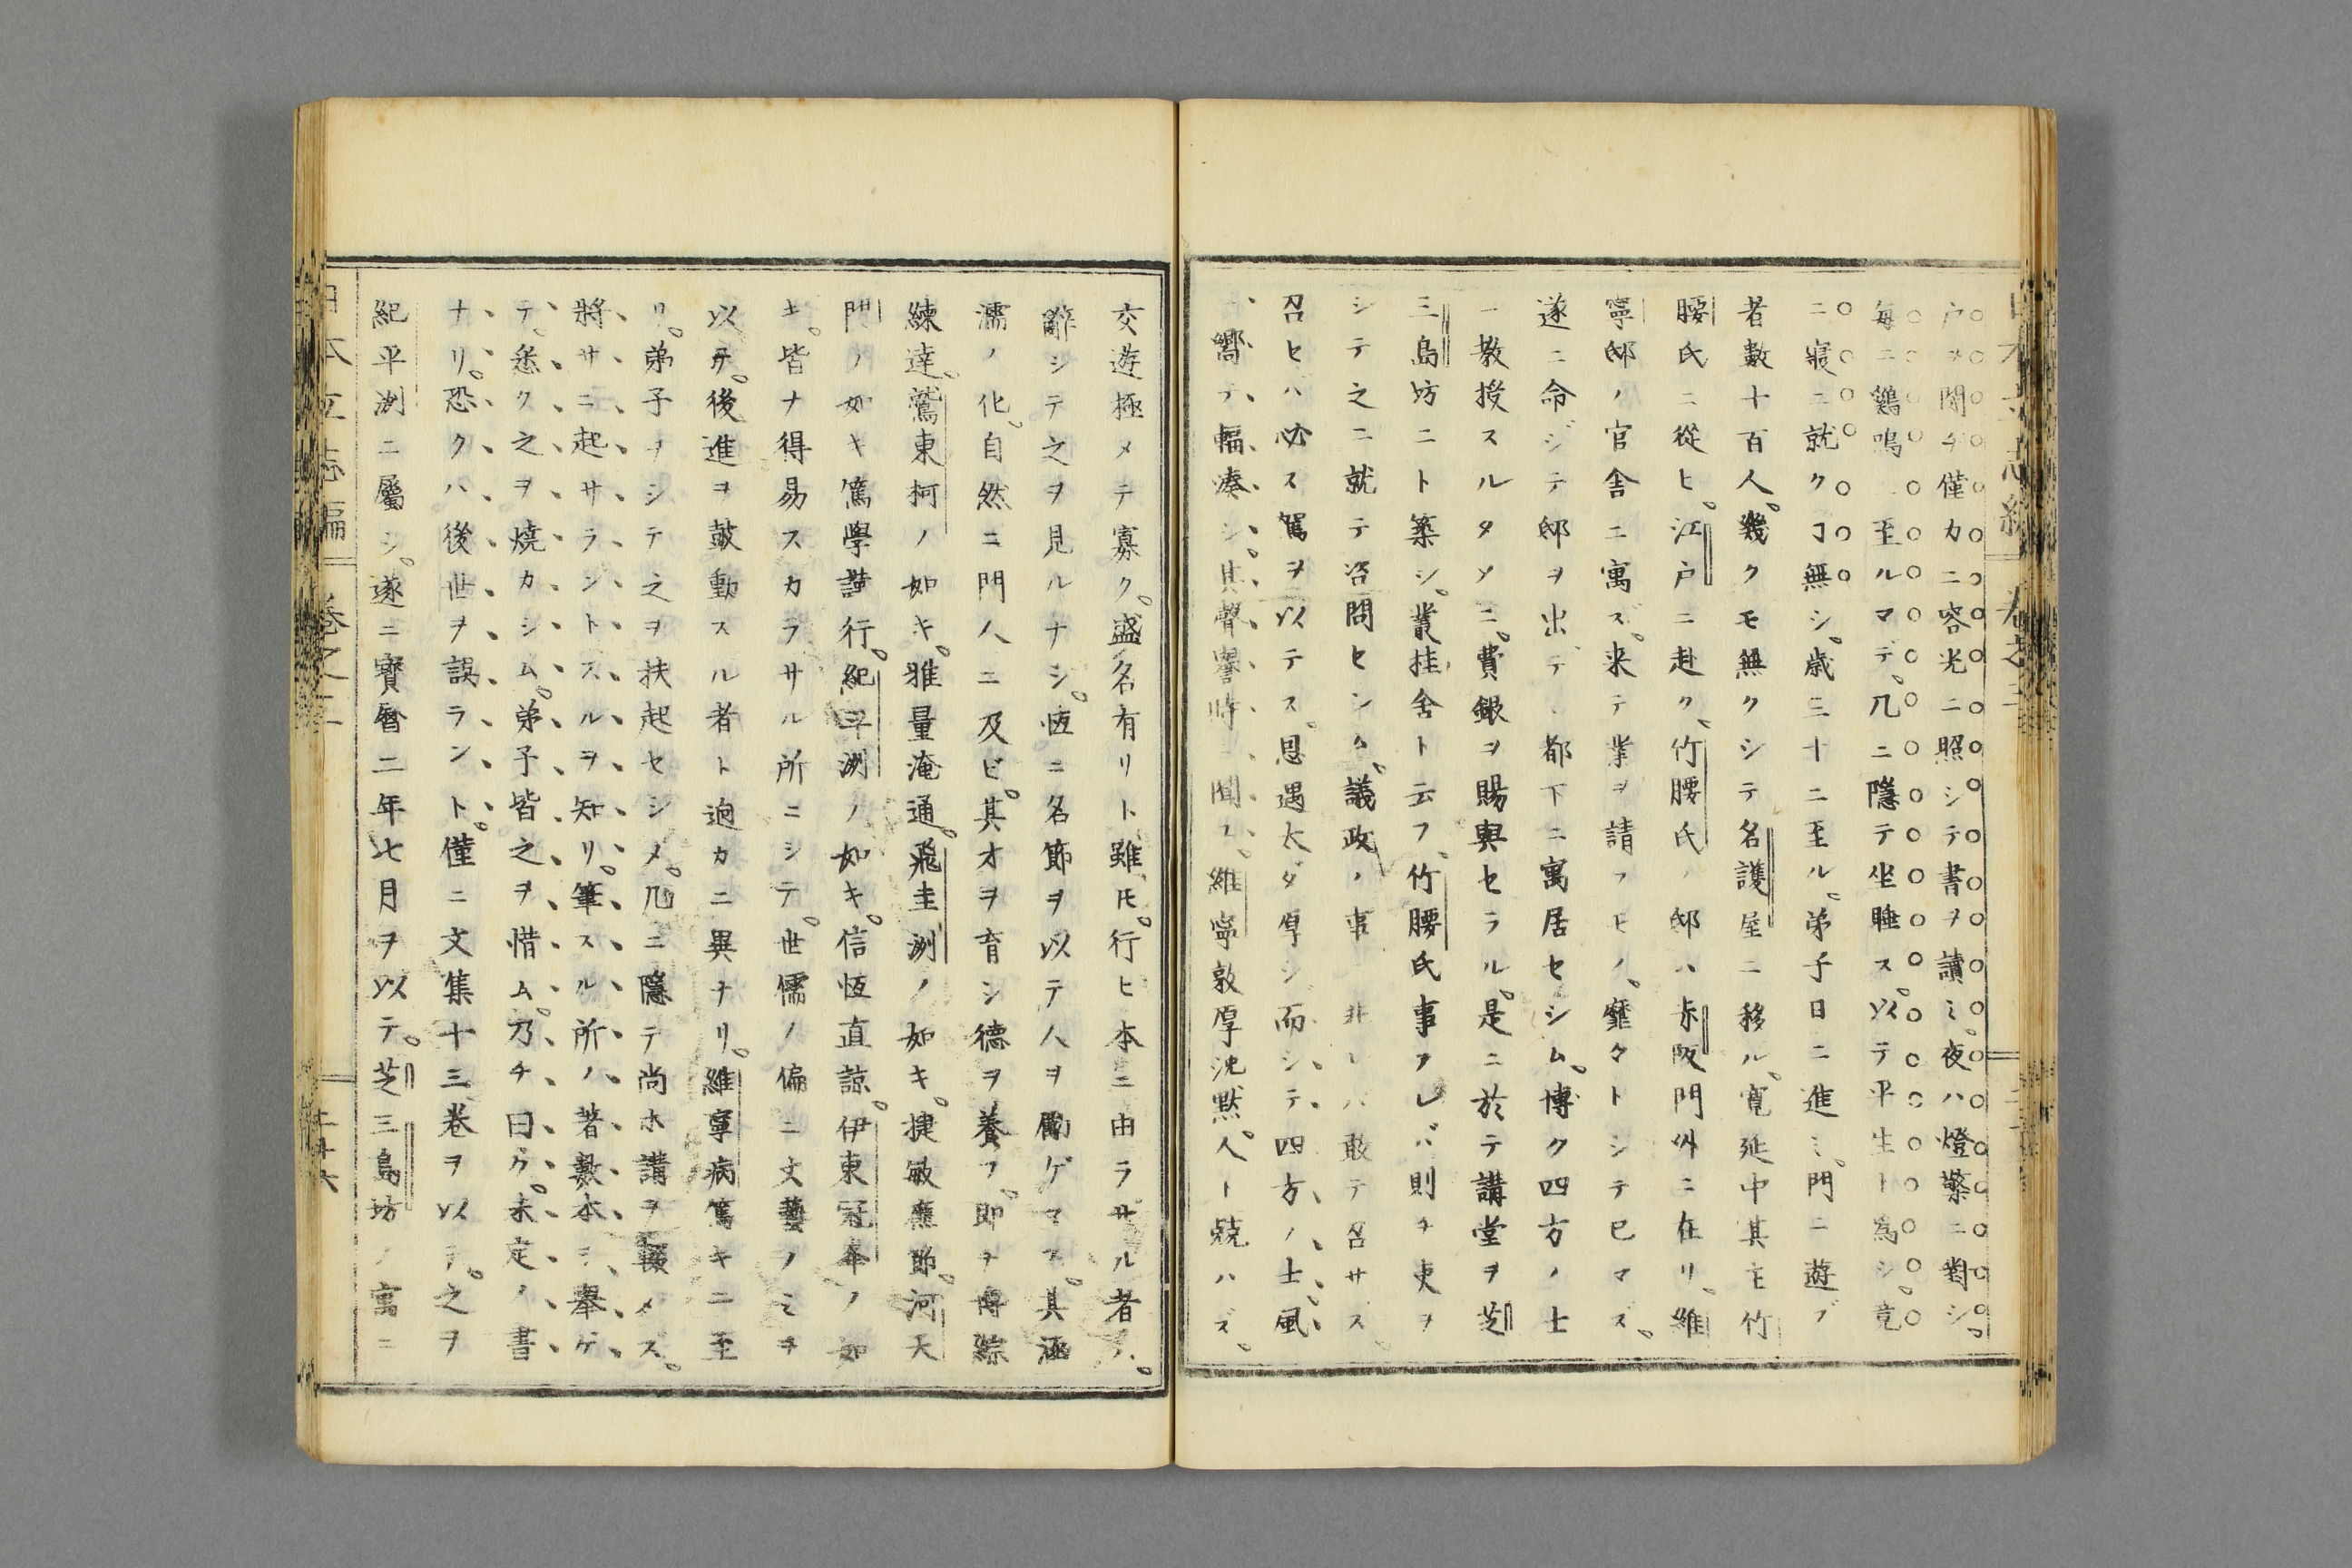 戸ヲ閉ヂ僅カニ容光ニ照シテ書ヲ讀ミ夜ハ燈檠ニ對シ
毎ニ鷄鳴ニ至ルマデ几ニ隱テ坐睡ス以テ平生ト爲シ竟
ニ寢ニ就クヿ無シ歳三十ニ至ル弟子日ニ進ミ門ニ遊ブ
者數十百人幾クモ無クシテ名護屋ニ移ル寛延中其主竹
腰氏ニ從ヒ江戸ニ赴ク竹腰氏ノ邸ハ赤阪門外ニ在リ維
寧邸ノ官舍ニ寓ズ来テ業ヲ請フヒノ靡々トシテ已マズ
遂ニ命ジテ邸ヲ出デ都下ニ寓居セシム博ク四方ノ士
ニ教授スルタメニ費銀ヲ賜與セラル是ニ於テ講堂ヲ芝
三島坊ニト築シ叢桂舍ト云フ竹腰氏事アレバ則チ吏ヲ
シテ之ニ就テ咨問セシム議政ノ事ニ非レバ敢テ召サス
召セバ必ス駕ヲ以テス恩遇太ダ厚シ而シテ四方ノ士風
ニ嚮テ輻湊シ其聲譽時ニ聞ユ維寧敦厚沈黙人ト競ハズ
交遊極メテ寡ク盛名有リト雖𪜈行ヒ本ニ由ラサル者ハ
辭シテ之ヲ見ルナシ恆ニ名節ヲ以テ人ヲ勵ゲマス其涵
濡ノ化自然ニ門人ニ及ビ其才ヲ育シ德ヲ養フ即チ博綜
練達鷲東柯ノ如キ雅量淹通飛圭洲ノ如キ捷敏應節河天
門ノ如キ篤學謹行紀平洲ノ如キ信恆直諒伊東冠峯ノ如
キ皆ナ得易スカラサル所ニシテ世儒ノ偏ニ文藝ノミヲ
以テ後進ヲ鼓動スル者ト逈カニ異ナリ維寧病篤キニ至
リ弟子ヲシテ之ヲ扶起セシメ几ニ隱テ尚ホ講ヲ輟メス
將サニ起サラントスルヲ知リ筆スル所ノ著數本ヲ擧ゲ
テ悉ク之ヲ燒カシム弟子皆之ヲ惜ム乃チ曰ク未定ノ書
ナリ恐クハ後世ヲ誤ラント僅ニ文集十三卷ヲ以テ之ヲ
紀平洲ニ屬シ遂ニ寶曆二年七月ヲ以テ芝三島坊ノ寓ニ
日本立志編 卷之三